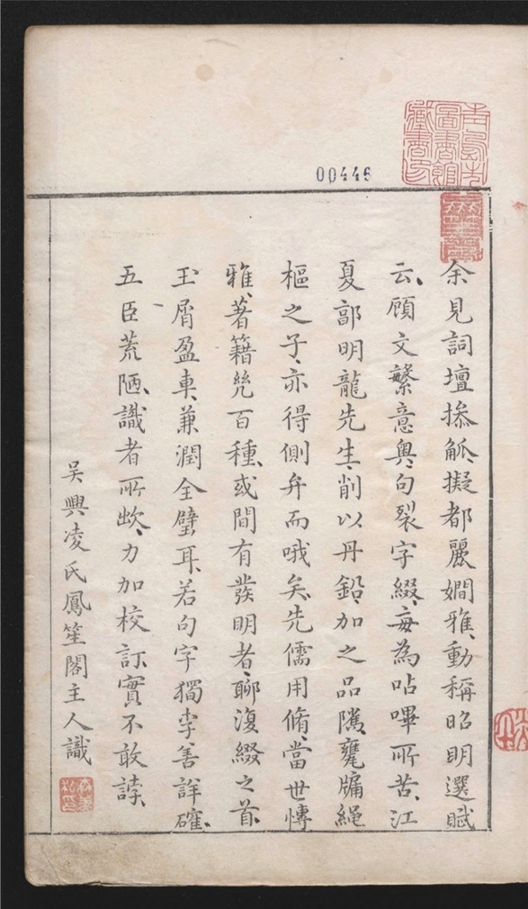 00446
圖書館
藏書印
余見詞壇摻觚擬都麗嫺雅、動稱昭明選賦
云、顧文繁意奥、句裂字綴、每為呫嗶所苦、江
夏郭明龍先生削以丹鉛、加之品隲、甕牖繩
樞之子、亦得側弁而哦矣、先儒用脩、當世博
雅、著籍幾百種、或間有發明者、聊復綴之首
玉屑盈車、兼潤全璧耳、若句字獨李善詳確、
五臣荒陋、識者所嗤、力加校訂實不敢誖、
吳興凌氏鳳笙閣主人識